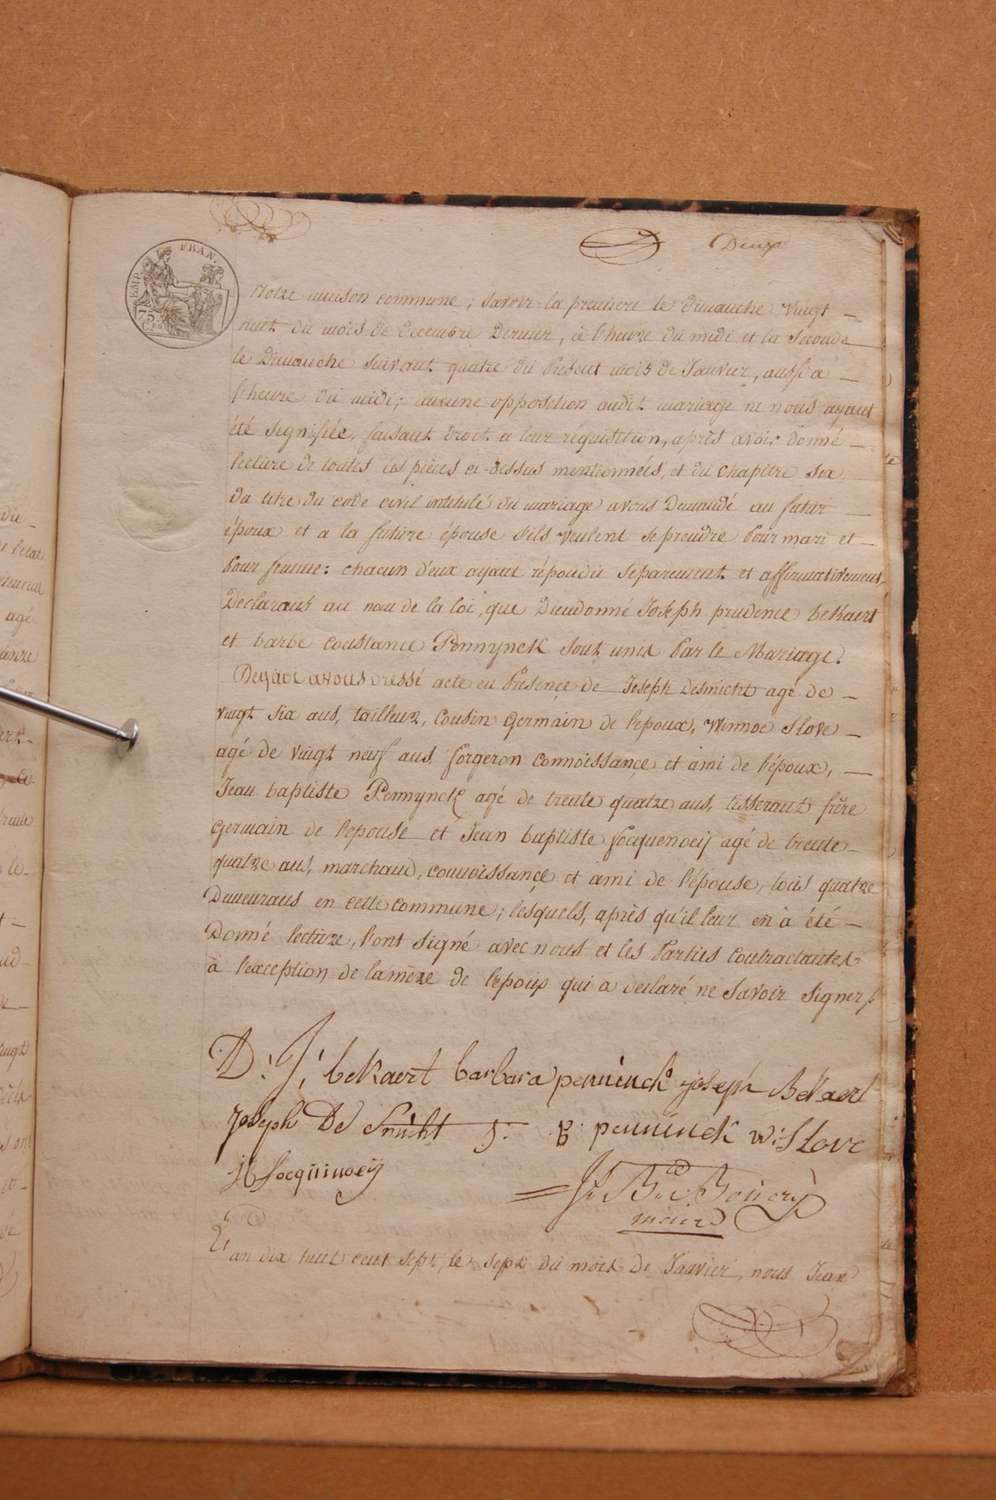 Deux
TIMP. FRAN.
75
Notre maison commune; Savoir la premiere le dimauche Vingt _
huit du mois de decembre Dernier, à l'heure du midi et la Seconde
le Dimanche Suivant quatre du Présent mois de Janvier, aussi a _
l'heure du midi; aucune opposition audit mariage ne nous ayant
été Signifiée, faisant droit a leur réquisition, après avoir donné _
lecture de toutes les pièces ci-dessus mentionnées, et du Chapitre Six
du titre du code civil intitulé du mariage avons Demandé au futur
époux et a la future épouse s'ils veulent se prendre Pour mari et _
Pour femme: chacun d'eux ayant répondu Séparement et affirmativement,
Declarons au nom de la loi, que Dieudonné Joseph prudence beKaert
et barbe constance PennyncK Sont unis Par le Mariage.
Dequoi avons dressé acte en Présence de Joseph Desmicht agé de _
vingt six ans, tailleur, Cousin Germain de l'epoux, Winnoc Slove _
agé de vingt neuf ans forgeron connoissance et ami de l'époux, _
Jean baptiste PennyncK agé de trente quatre ans, tisserant frère
Germain de l'epouse et Jean baptiste focquenoeij agé de trente _
quatre ans, marchand, connoissance et ami de l'épouse, tous quatre
Demeurans en cette commune; lesquels, après qu'il leur en à été _
Donné lecture, l'ont Signé avec nous et les Parties contractantes
à l'exception de la mère de l'epoux qui a declaré ne Savoir Signer
D: J: beKaert barbara penninck joseph BeKaert
Joseph De Smicht J: B penninck w: Slove
JB focquinoeij
maire
L'an dix huit cent sept, le sept du mois de Janvier, nous Jean